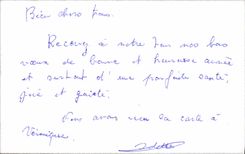 Bien chers tous.
Recevez à notre tour nos bons
vœux de bonne et heureuse année
et surtout d'une parfaite santé,
joie et gaieté.
Nous avons vu la carte à
Véronique.
Odette